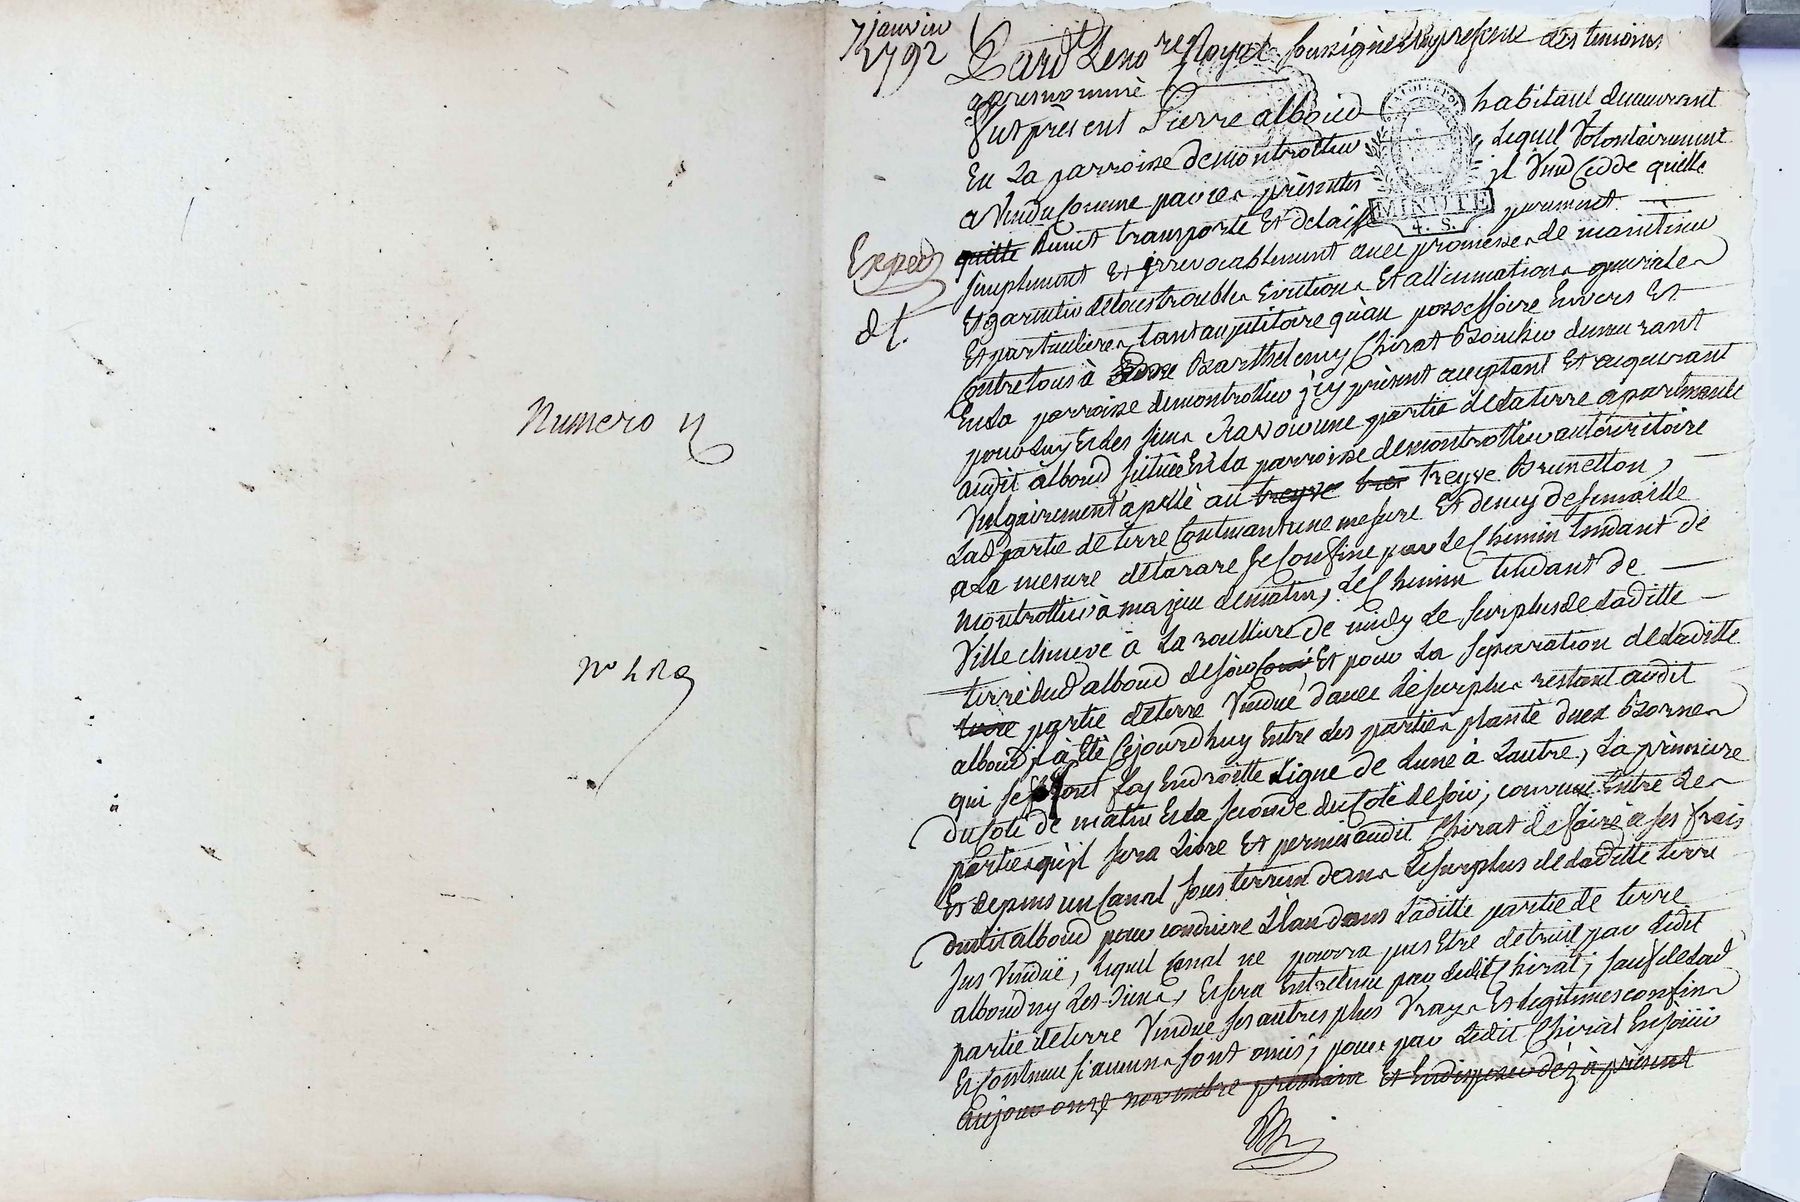 Numero
N°
7 janvier
1792
Exped
d t.
Pardt Leno re Royal soussigné et en presence des temoins
apresnommé
fut present Pierre alboud habitant demeurant
En La parroisse de montrottier Lequel Volontairement
a Vendu Comme par ces presentes il Vend Cedde quitte
quitte Remet transporte Et delaisse purement
simplement Et irrevocablement avec promesse de maintenir
Et garantir de tous troubles Evictions Et allienations generales
Et particulieres tant au petitoire qu'au possessoire Envers Et
Contre tous à Barthelemy Chirat Boucher demeurant
En La parroisse de montrottier icy present acceptant Et acquerant
pour Luy Et Les siens Scavoir une partie de la terre apartenante
audit alboud situëe En La parroisse de montrottier au territoire
Vulgairement apellé au treyve treyve Brunetton,
Lad partie de terre Contenant une mesure Et demy de semaille
a La mesure de tarare se Confine par Le Chemin tendant de
montrottier à de matin, Le Chemin tendant de
Ville cheneve à La roulliere de midy Le surplus de Laditte
terre dud alboud de soir Et pour La separation de Laditte
terre partie de terre Vendue d'avec Le surplus restant audit
alboud il à Eté Cejourdhuy Entre Les parties planté deux Bornes
qui se font foy En droitte Ligne de Lune à Lautre, La premiere
du Coté de matin Et La seconde du Coté de soir; convenu Entre Les
parties qu'il sera Libre Et permis audit Chirat de faire à ses frais
Et depens un Canal sous terrein dans Le surplus de Laditte terre
dudit alboud pour conduire L'Eau dans Laditte partie de terre
sus Vendue, Lequel Canal ne pourra pas Etre detruit par Ledit
alboud ny Les siens, Et sera Entretenu par Ledit Chirat; sauf de Lad
partie de terre Vendue ses autres plus Vrays Et Legitimes confins
Et Contenue si aucuns sont omis; pour par Ledit Chirat En jouir
aujour onze novembre prochain Et En disposer dèz à present
MINUTE
4. S.